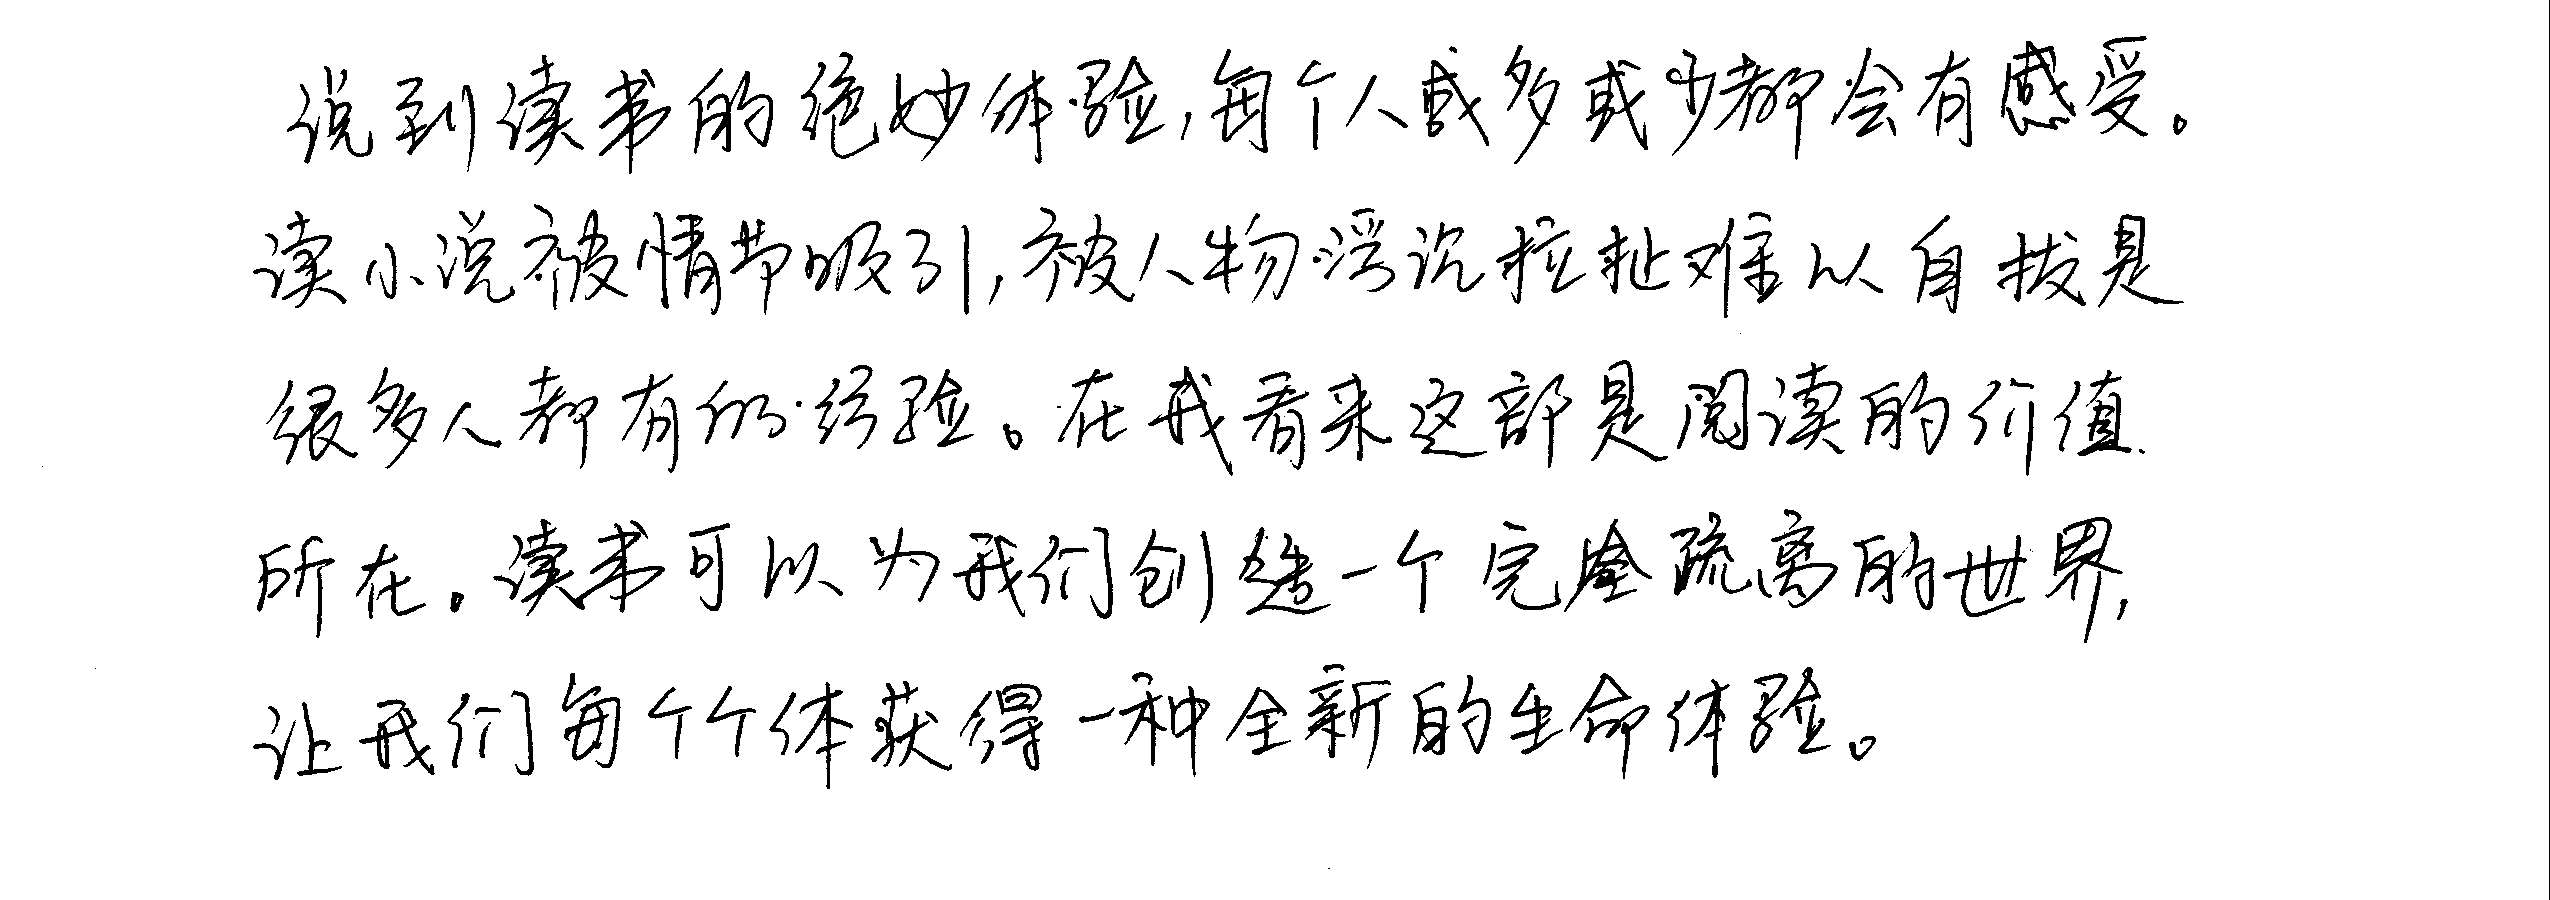 说到读书的绝妙体验,每个人或多或少都会有感受。
读小说被情节吸引,被人物浮沉拉扯难以自拔是
很多人都有的经验。在我看来这部是阅读的价值
所在。读书可以为我们创造一个完全疏离的世界,
让我们每个个体获得一种全新的生命体验。